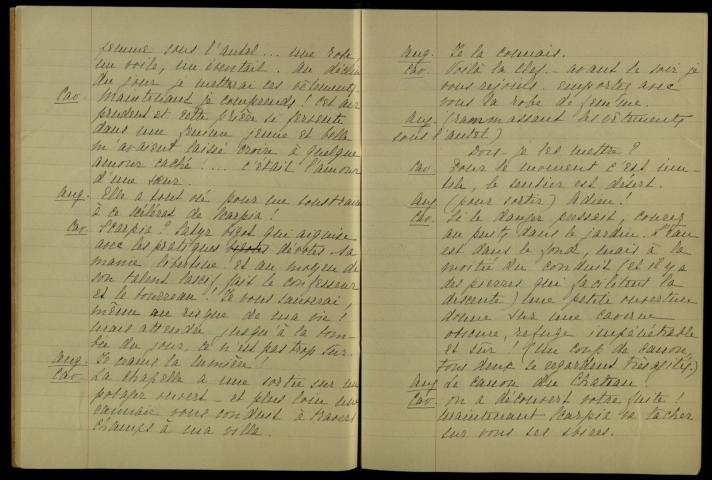 femme sous l'autel... une robe
un voile, un éventail. Au déclin
du jour je mettrai ces vêtements
Cav. Maintenant je comprends! Cet air
prudent et cette prière si fervente
dans une femme jeune et belle
m'avaient laissé croire à quelque
amour caché!.... c'était l'amour
d'une sœur.
Ang. Elle a tout osé pour me soustraire
à ce scélérat de Scarpia!
Cav. Scarpia? Satyr bigot qui aiguise
avec les pratiques dévotes sa
manie libertine et au moyen de
son talent lascif, fait le confesseur
et le bourreau! Je vous sauverai,
même au risque de ma vie!
Mais attendre jusqu'à la tom-
bée du jour, ce n'est pas trop sûr.
Ang. Je crains la lumière!
Cav. La chapelle a une sortie sur un
potager ouvert - et plus loin un
vous conduit à travers
champs à ma villa.
Ang. Je la connais.
Cav. Voilà la clef - avant le soir je
vous rejoins. emportez avec
vous la robe de femme.
Ang. (rammassant les vêtements
sous l'autel)
Dois-je les mettre?
Cav. Pour le moment c'est inu-
tile, le sentier est désert.
Ang. (pour sortir) Adieu!
Cav. Si le danger pressait, courez
au puits dans le jardin. L'eau
est dans le fond, mais à la
moitié du conduit (et il y a
des pierres qui facilitent la
descente) une petite ouverture
donne sur une caverne
obscure, refuge impénétrable
et sûr! (Un coup de canon,
tous deux se regardent très agités)
Ang. Le canon du Chateau!
Cav. On a découvert votre fuite!
Maintenant Scarpia va lâcher
sur vous ses sbires.